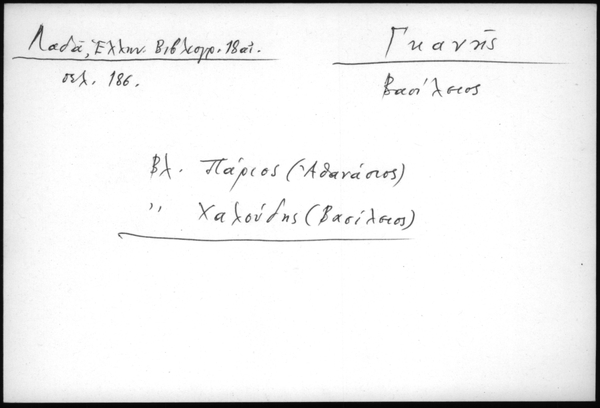 Λαδᾶ, Ἑλλην. Βιβλιογρ. 18 αἰ.
σελ. 186.
Γκανῆς
Βασίλειος
Βλ. Πάριος (Ἀθανάσιος)
〃 Χαλούδης (Βασίλειος)